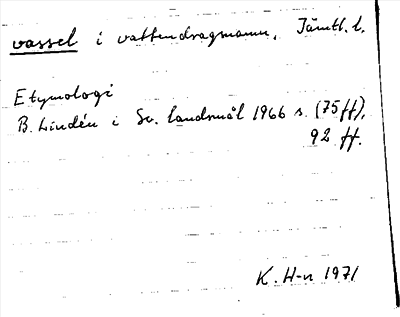 vassel i vattendragnamn, Jämtl. l.
Etymologi
B. Lindén i Sv. landsmål 1966 s. (75 ff),
92 ff.
K. H-n 1971